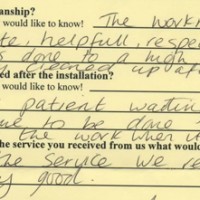 anship?
would like to know! The workm
te, helpfull, respec
s done to a high
cleaned up aft
ed after the installation?
would like to know!
patient waiting
e to be done
the work when it
the service you received from us what would
he service we re
y good.